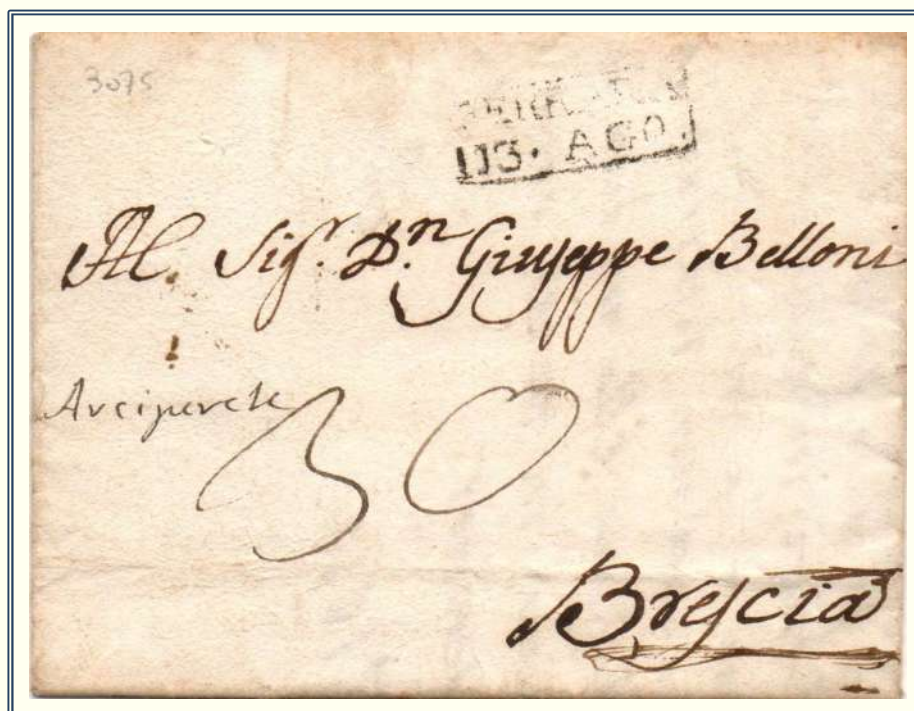 3075
13. AGO.
Al. Sigr. Dn. Giuseppe Belloni
Arciprete
30
Brescia